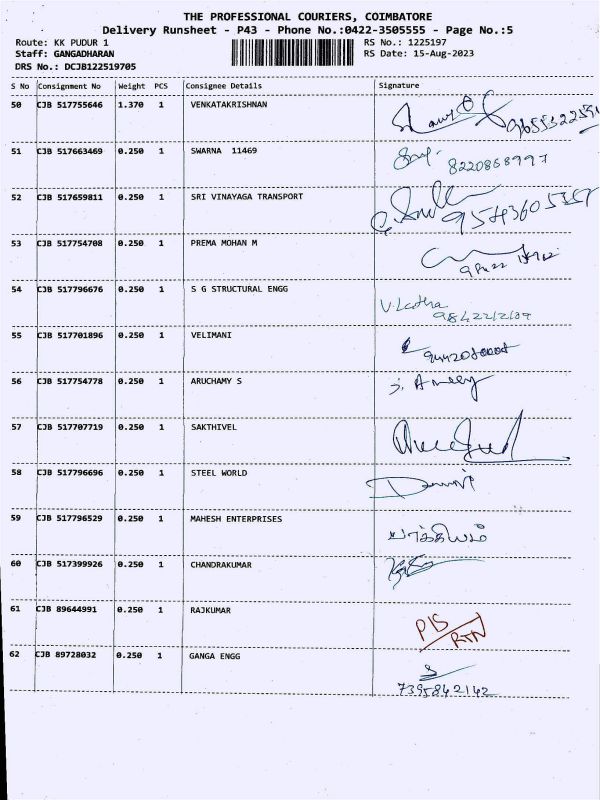 THE PROFESSIONAL COURIERS, COIMBATORE
Delivery Runsheet - P43 - Phone No.:0422-3505555 - Page No.:5
Route: KK PUDUR 1 RS No.: 1225197
Staff: GANGADHARAN RS Date: 15-Aug-2023
DRS No.: DCJB122519705
S No Consignment No Weight PCS Consignee Details Signature
50 CJB 517755646 1.370 1 VENKATAKRISHNAN
51 CJB 517663469 0.250 1 SWARNA 11469
8220868997
52 CJB 517659811 0.250 1 SRI VINAYAGA TRANSPORT
53 CJB 517754708 0.250 1 PREMA MOHAN M
54 CJB 517796676 0.250 1 S G STRUCTURAL ENGG
V. Latha
55 CJB 517701896 0.250 1 VELIMANI
56 CJB 517754778 0.250 1 ARUCHAMY S
57 CJB 517707719 0.250 1 SAKTHIVEL
58 CJB 517796696 0.250 1 STEEL WORLD
59 CJB 517796529 0.250 1 MAHESH ENTERPRISES
60 CJB 517399926 0.250 1 CHANDRAKUMAR
61 CJB 89644991 0.250 1 RAJKUMAR
PIS
RTN
62 CJB 89728032 0.250 1 GANGA ENGG
7395842142